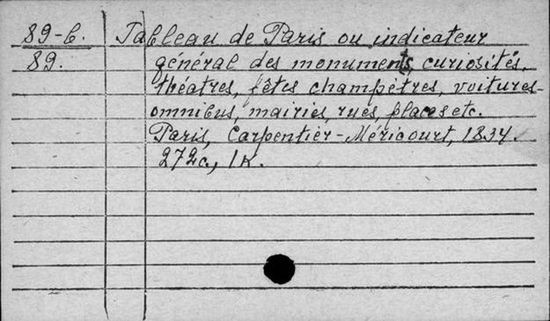 89-б. Tableau de Paris ou indicateur
89. général des monuments, curiosités,
théatres, fêtes champêtres, voitures-
omnibus, mairies, rues, places etc.
Paris, Carpentier-Méricourt, 1834.
272c., 1к.